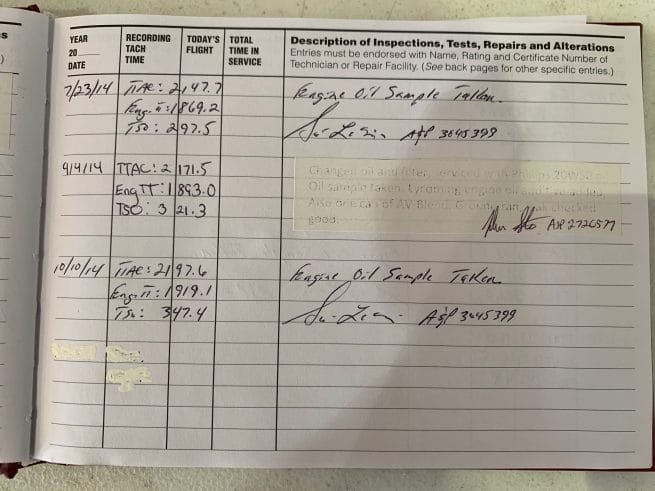 YEAR
20
DATE
RECORDING
TACH
TIME
TODAY'S
FLIGHT
TOTAL
TIME IN
SERVICE
Description of Inspections, Tests, Repairs and Alterations
Entries must be endorsed with Name, Rating and Certificate Number of
Technician or Repair Facility. (See back pages for other specific entries.)
7/23/14 TTAE: 2147.7 Engine Oil Sample Taken.
Eng. TT: 1869.2
TSO: 297.5 A&P 3645399
9/4/14 TTAC: 2171.5 Changed oil and filter, serviced with Phillips 20W50
Eng TT: 1893.0 Oil sample taken. Lycoming engine oil
TSO: 321.3 Also one can of AV Blend. checked
good. A&P 2726577
10/10/14 TTAE: 2197.6 Engine Oil Sample Taken
Eng. TT: 1919.1
TSO: 347.4 A&P 3645399